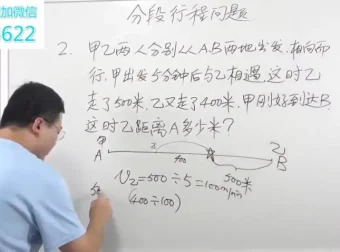 加微信
622
分段行程问题
2. 甲乙两人分别从A.B两地出发,相向而
行.甲出发5分钟后与乙相遇,这时乙
走了500米,乙又走了400米,甲刚好到达B,
这时乙距离A多少米?
甲
乙
x
A
400
500米
B
V乙=500÷5=100m/min
(400÷100)